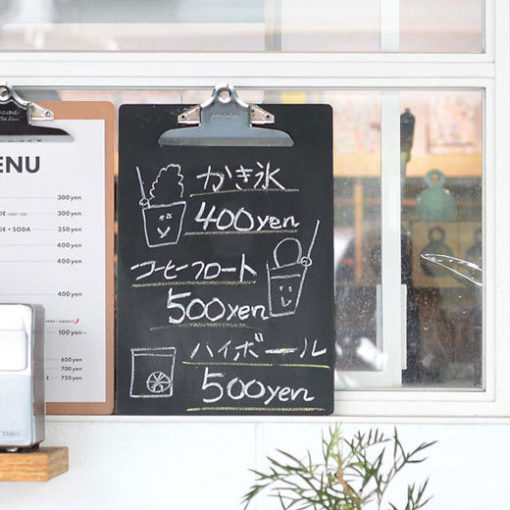 ENU
300yen
300yen
DE + SODA 350yen
400yen
400yen
400yen
100yen
650yen
700yen
750yen
かき氷
400yen
コーヒーフロート
500yen
ハイボール
500yen